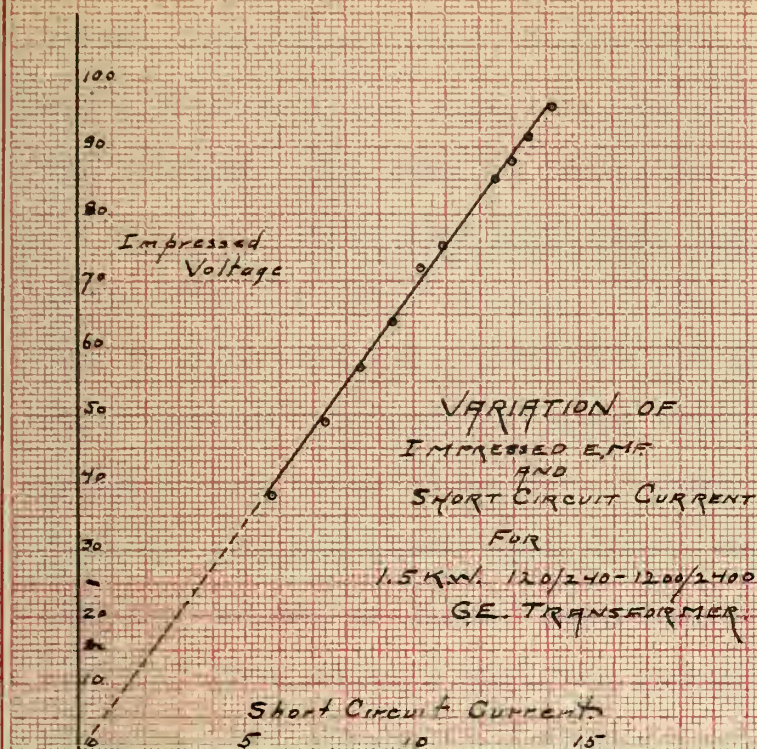 100
90
80
Impressed
Voltage
70
60
50
VARIATION OF
IMPRESSED E.M.F.
AND
40
SHORT CIRCUIT CURRENT
FOR
30
1.5 K.W. 120/240-1200/2400
20
G.E. TRANSFORMER.
10
Short Circuit Current.
0 5 10 15